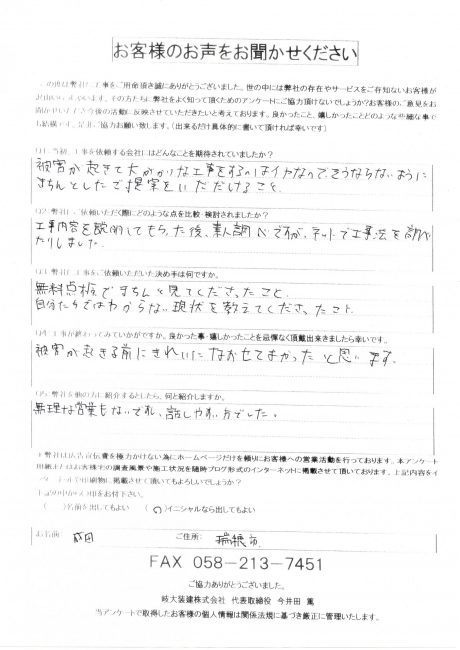 お客様のお声をお聞かせください
この度は弊社に工事をご用命頂き誠にありがとうございました。世の中には弊社の存在やサービスをご存知ないお客様が
その方たちに弊社をよく知って頂くためのアンケートにご協力頂けないでしょうか？お客様のご意見をお
今後の活動に反映させていただきたいと考えております。良かったこと、嬉しかったことどのような些細な事で
も結構です。是非ご協力お願い致します。（出来るだけ具体的に書いて頂ければ幸いです）
Q1 当初、工事を依頼する会社にはどんなことを期待されていましたか？
被害が起きて大がかりな工事をするのはイヤなので、そうならないように
きちんとしたご提案をいただけること、
Q2 弊社にご依頼いただく際にどのような点を比較・検討されましたか？
工事内容を説明してもらった後、素人調べですが、ネットで工事法を調べ
たりしました。
Q3 弊社に工事をご依頼いただいた決め手は何ですか。
無料点検できちんと見てくださったこと。
自分たちではわからない現状を教えてくださったこと。
Q4 工事が終わってみていかがですか。良かった事・嬉しかったことを忌憚なく頂戴出来きましたら幸いです。
被害が起きる前にきれいになおせてよかったと思います。
Q5 弊社を他の方に紹介するとしたら、何と紹介しますか。
無理な営業もないですし、話しやすい方でした。
弊社は広告宣伝費を極力かけない為にホームページだけを頼りにお客様への営業活動を行っております。本アンケート
用紙またはお客様宅の調査風景や施工状況を随時ブログ形式のインターネットに掲載させて頂いております。上記内容をイ
ンターネットや印刷物に掲載させて頂いてもよろしいでしょうか？
（　）名前を出してもよい　（○）イニシャルなら出してもよい
お名前　成田　ご住所：　瑞穂市
FAX 058-213-7451
ご協力ありがとうございました。
岐大装建株式会社 代表取締役 今井田 篤
当アンケートで取得したお客様の個人情報は関係法規に基づき厳正に管理いたします。